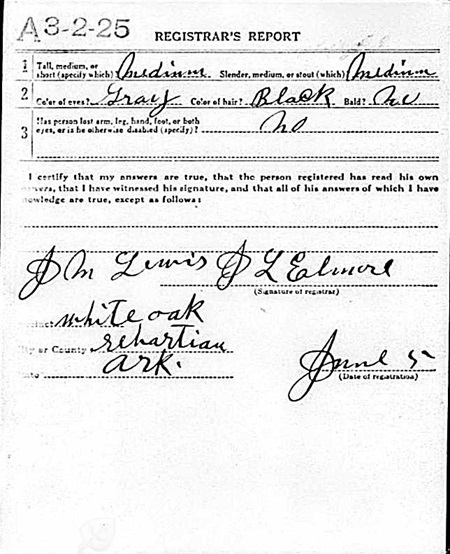 A3-2-25
REGISTRAR'S REPORT
1 Tall, medium, or short (specify which)? Medium Slender, medium, or stout (which)? Medium
2 Color of eyes? Gray Color of hair? Black Bald? No
3 Has person lost arm, leg, hand, foot, or both eyes, or is he otherwise disabled (specify)? No
I certify that my answers are true, that the person registered has read his own
swers, that I have witnessed his signature, and that all of his answers of which I have
nowledge are true, except as follows:
J M Lewis J L Elmore
(Signature of registrar)
cinct White oak
ity or County Sebartian
Ark.
June 5
(Date of registration)